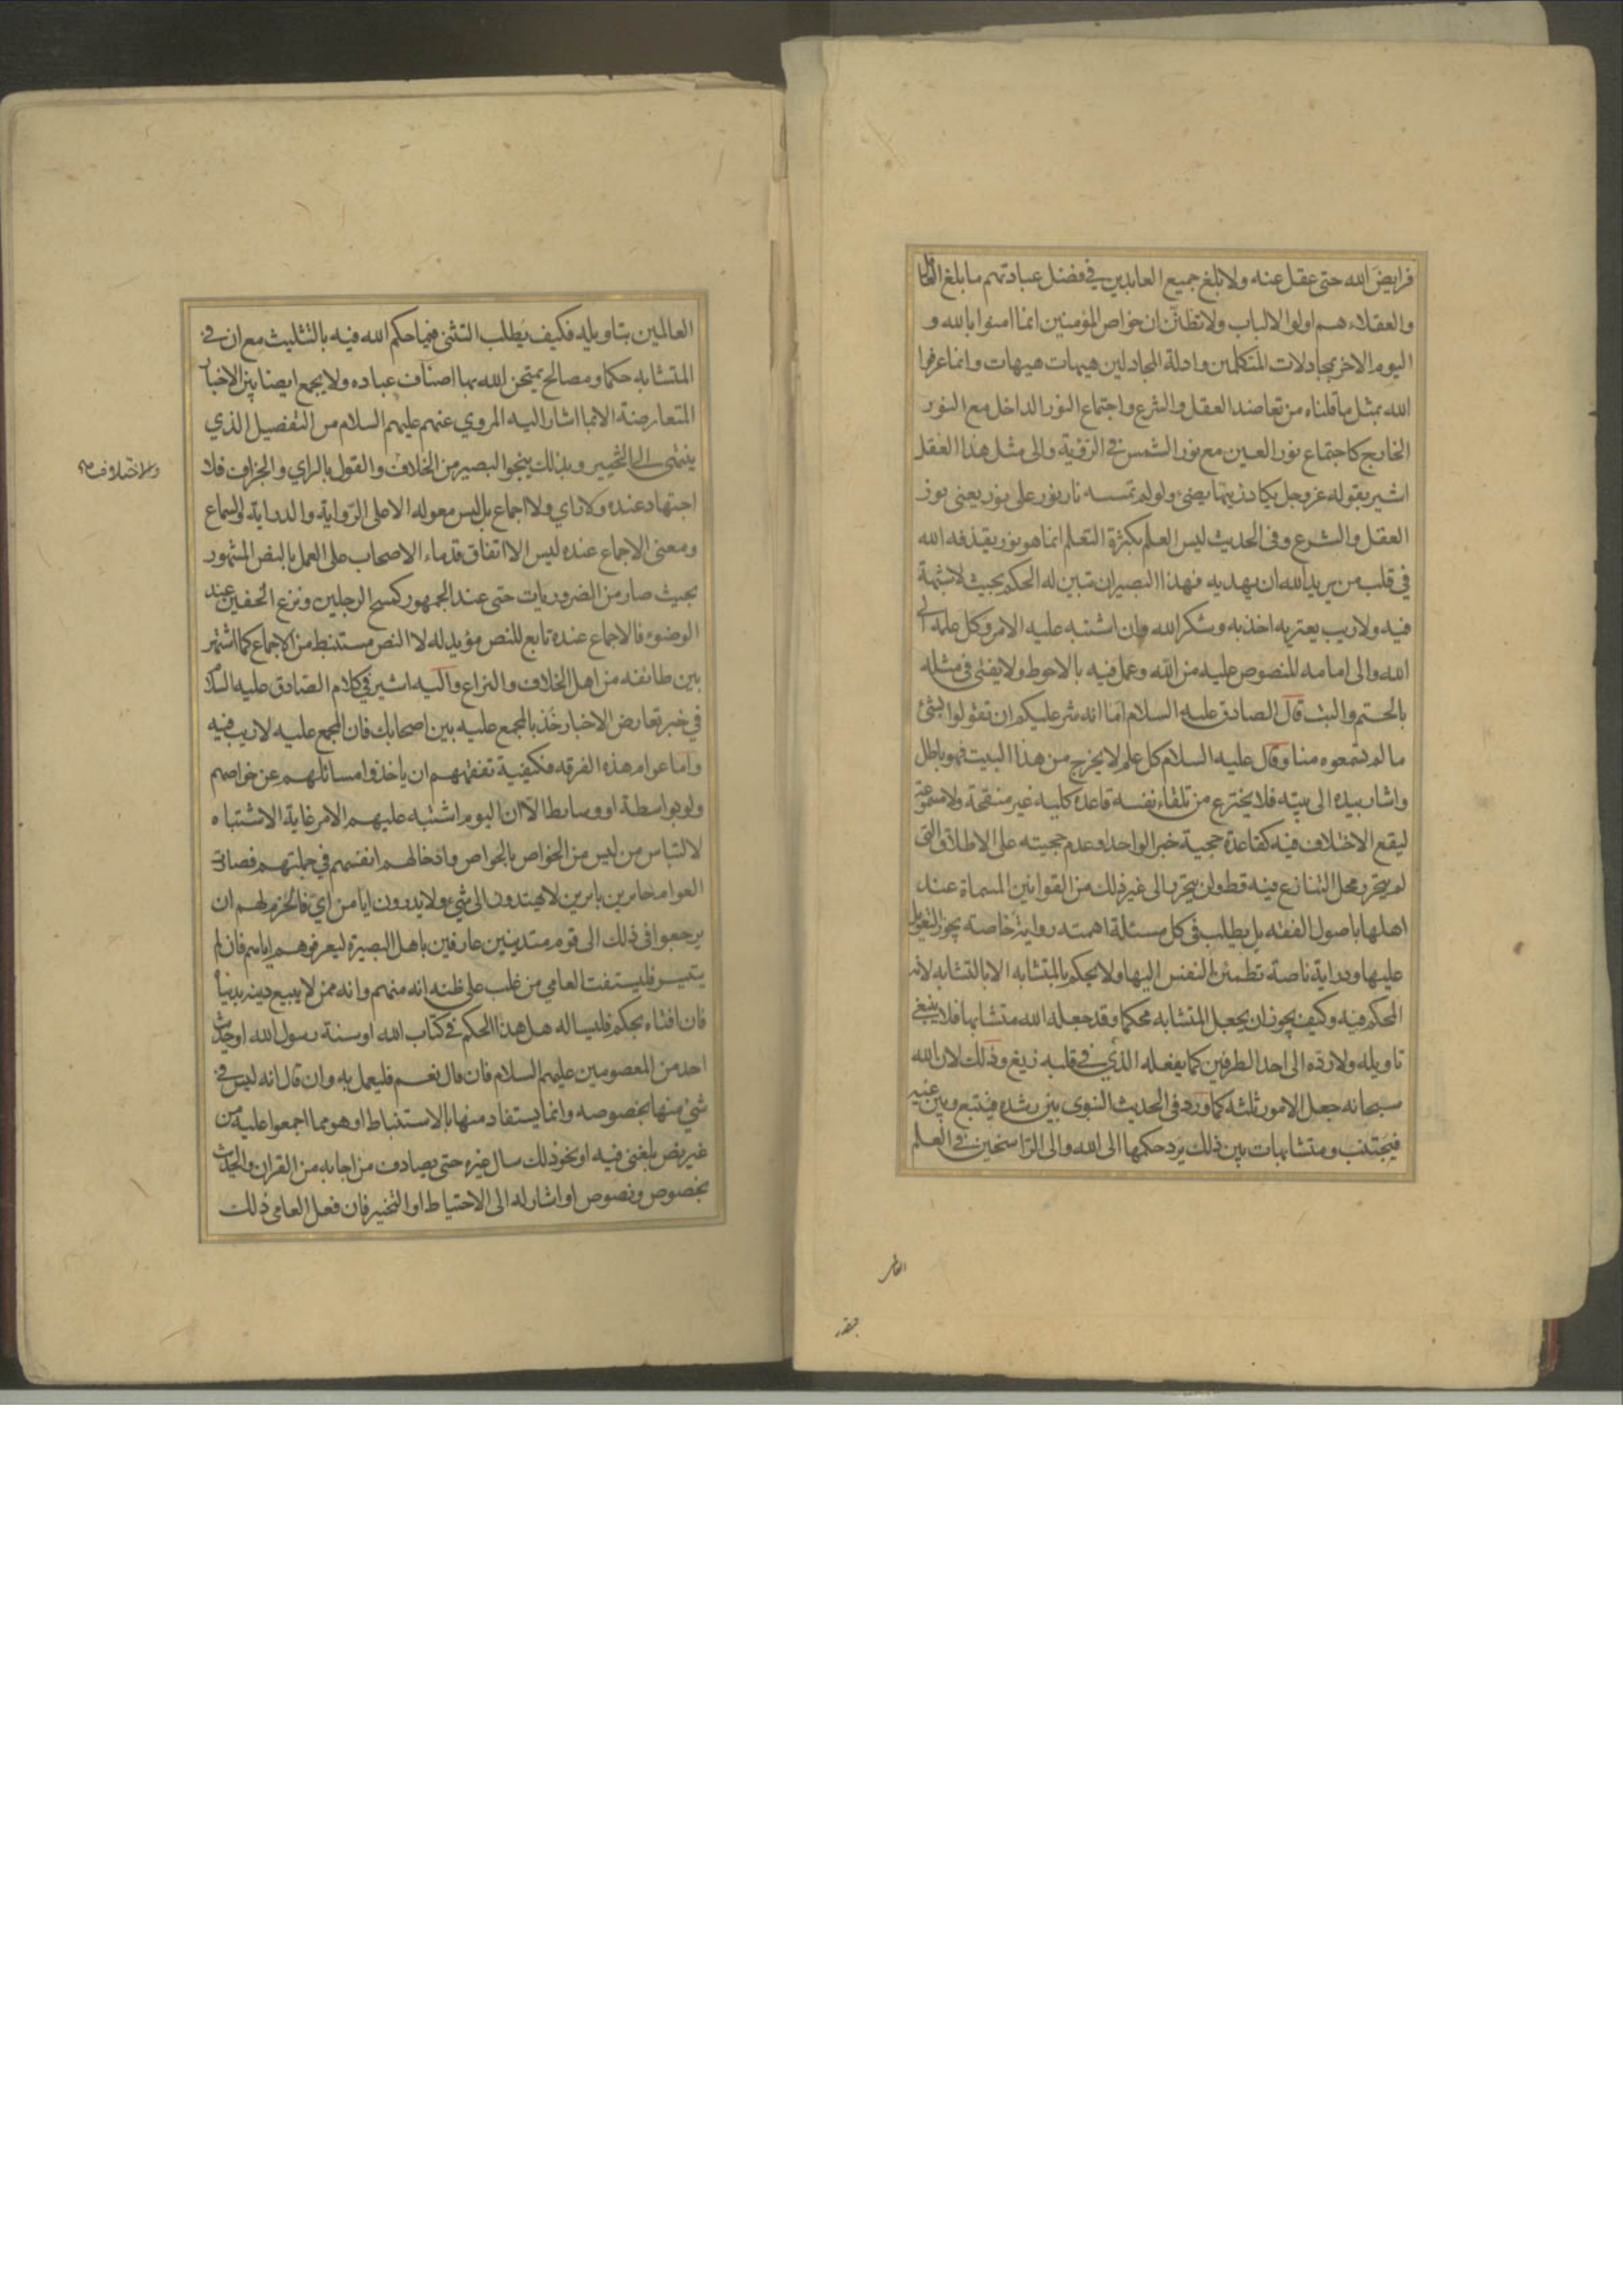 فرايض الله حتى عقل عنه ولا بلغ جميع العابدين في فضل عبادتهم ما بلغ العاقل
والعقلاء هم اولوا الالباب ولا تظنّن ان خواص المؤمنين انما امنوا بالله و
اليوم الاخر بمجادلات المتكلمين وادلة المجادلين هيهات هيهات وانما عرفوا
الله بمثل ما قلناه من تعاضد العقل والشرع واجتماع النور الداخل مع النور
الخارج كاجتماع نور العين مع نور الشمس في الرؤية والى مثل هذا العقل
اشير بقوله عز وجل يكاد زيتها يضئ ولو لم تمسسه نار نور على نور يعنى نور
العقل والشرع وفي الحديث ليس العلم بكثرة التعلم انما هو نور يقذفه الله
في قلب من يريد الله ان يهديه فهذا البصير ان تبين له الحكم بحيث لا شبهة
فيه ولا ريب يعتريه اخذ به وشكر الله وان اشتبه عليه الامر وكل علمه الى
الله والى امامه المنصوص عليه من الله وعمل فيه بالاحوط ولا يفتى في مثله
بالحتم والبت قال الصادق عليه السلام اما انه شر عليكم ان تقولوا بشئ
ما لم تسمعوه منا وقال عليه السلام كل علم لا يخرج من هذا البيت فهو باطل
واشار بيده الى بيته فلا يخترع من تلقاء نفسه قاعدة كلية غير منقحة ولا مسموعة
ليقع الاختلاف فيه كقاعدة حجية خبر الواحد وعدم حجيته على الاطلاق التى
لم يتحرر محل التنازع فيه قط ولن يتحرر الى غير ذلك من القوانين المسماة عند
اهلها باصول الفقه بل يطلب في كل مسئلة اهمته رواية خاصة يجوز التعويل
عليها ودراية ناصة تطمئن النفس اليها ولا يحكم بالمتشابه الا بالتشابه لانه
المحكم فيه وكيف يجوز ان يجعل المتشابه محكما وقد جعله الله متشابها فلا ينبغي
تاويله ولا رده الى احد الطرفين كما يفعله الذي في قلبه زيغ وذلك لان الله
سبحانه جعل الامور ثلثة كما ورد في الحديث النبوى بين رشده فيتبع وبين غيه
فيجتنب ومتشابهات بين ذلك يرد حكمها الى الله والى الراسخين في العلم
العالمين بتاويله فكيف يطلب التثني فيما حكم الله فيه بالتثليث مع ان في
المتشابه حكما ومصالح يمتحن الله بها اصناف عباده ولا يجمع ايضا بين الاخبار
المتعارضة الا بما اشار اليه المروي عنهم عليهم السلام من التفصيل الذي
ينتهى الى التخيير وبذلك ينجوا البصير من الخلاف والقول بالراي والجزاف فلا
والاختلاف
اجتهاد عنده ولا راي ولا اجماع بل ليس معوله الا على الرواية والدراية والسماع
ومعنى الاجماع عنده ليس الا اتفاق قدماء الاصحاب على العمل بالنص المشهور
بحيث صار من الضروريات حتى عند الجمهور كمسح الرجلين ونزع الخفين عند
الوضوء فالاجماع عنده تابع للنص مؤيد له لا النص مستنبط من الاجماع كما اشتهر
بين طائفه من اهل الخلاف والنزاع واليه اشير في كلام الصادق عليه السلام
في خبر تعارض الاخبار خذ بالمجمع عليه بين اصحابك فان المجمع عليه لا ريب فيه
واما عوام هذه الفرقه فكيفية تفقههم ان ياخذوا مسائلهم عن خواصهم
ولو بواسطة او وسايط الا ان اليوم اشتبه عليهم الامر غاية الاشتباه
لالتباس من ليس من الخواص بالخواص وادخالهم انفسهم في جملتهم فصارت
العوام حايرين بايرين لا يهتدون الى شئ ولا يدرون ايا من اي فالحزم لهم ان
يرجعوا في ذلك الى قوم متدينين عارفين باهل البصيرة ليعرفوهم اياهم فان لم
يتيسر فليستفت العامي من غلب على ظنه انه منهم وانه ممن لا يبيع دينه بدنياه
فان افتاه بحكم فليساله هل هذا الحكم في كتاب الله او سنة رسول الله او حديث
احد من المعصومين عليهم السلام فان قال نعم فليعمل به وان قال انه ليس في
شئ منها بخصوصه وانما يستفاد منها بالاستنباط او هو مما اجمعوا عليه من
غير نص بلغنى فيه او نحو ذلك سال غيره حتى يصادف من اجابه من القران والحديث
بخصوص ونصوص او اشار له الى الاحتياط او التخيير فان فعل العامى ذلك